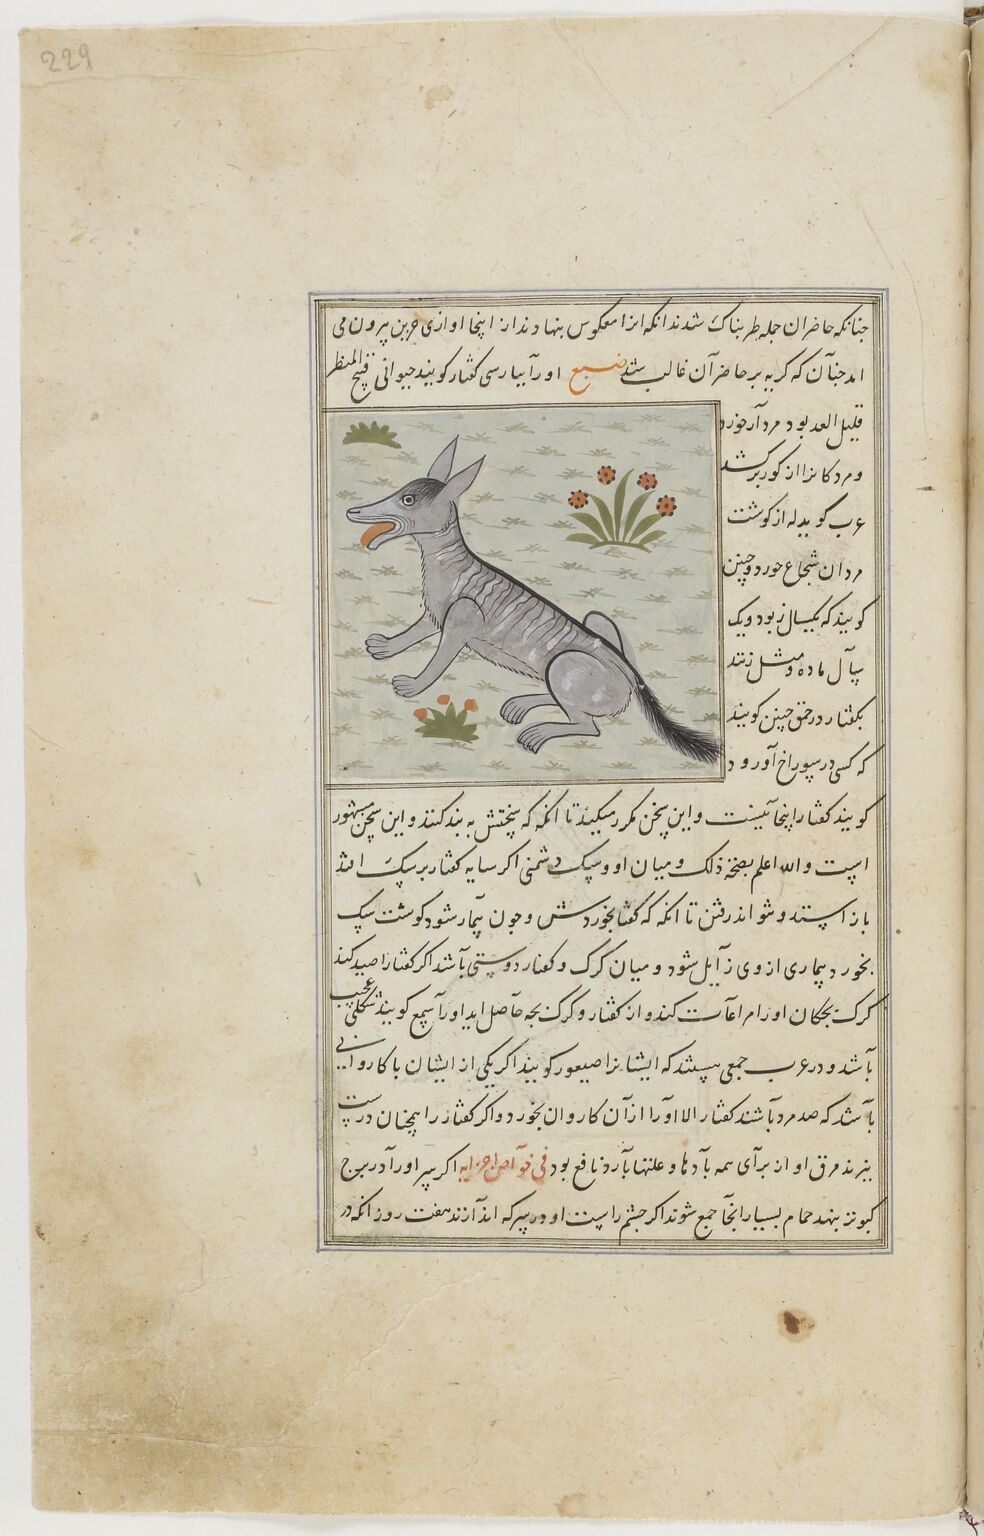 229
جنانکه حاضران جمله طربناک شدند انکه انرا معکوس بنهادند از اینجا اوازی حزین بیرون می
امد جنآن که کریه بر حاضرآن غالب شد ضبع اورآ بپارسی کفتار کویند حیوانی قبیح المنظر
قلیل العد بود مردآر خورد
و مردکانرا از کور برکشد
عرب کوید له از کوشت
مردان شجاع خورد و چنین
کویند که یکسال نر بود و یک
سآل ماده و مثل زنند
بکفتار در حمق چنین کویند
که کسی در سوراخ آو رود و
کویند کفتار اینجا نیست و این سخن مکرر میکند تا انکه که سختش به بند کنند و این سخن مشهور
است والله اعلم بصحة ذلک و میان او و سک دشمنی اکر سایه کفتار بر سک افتد
باز استد و نتواند رفتن تا انکه که کفتا بخوردش و جون بیمار شود کوشت سک
بخورد بیماری از وی زآیل شود و میان کرک و کفتار دوستی بآشد اکر کفتار را صید کنند
کرک بجکان اورا مراعآت کند و از کفتار و کرک بجه حآصل اید اورآ سمع کویند شکلی عجیب
بآشد و در عرب جمعی هستند که ایشانرا ضبعور کویند اکر یکی از ایشان با کاروانی
بآشد که صد مرد بآشند کفتار الا اورآ از آن کاروان نخورد و اکر کفتار را همچنان درست
بپزند مرق او از برآی همه بآدها و علتها بآرد نافع بود فی خوآص اجزایه اکر سر اورآ در برج
کبوتر بنهد حمام بسیار انجآ جمع شوند اکر چشم راست او در سرکه اندآزند هفت روز انکه در